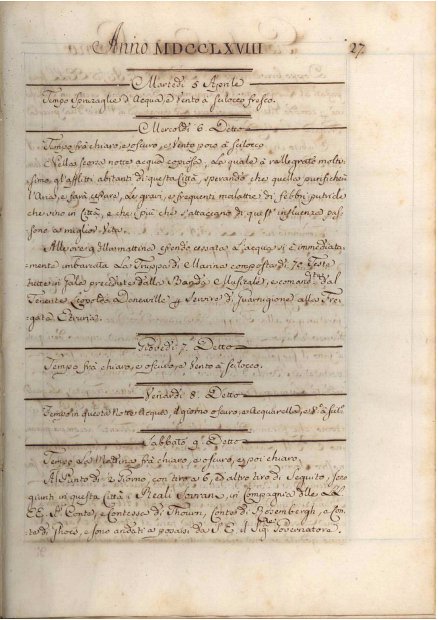 Anno MDCCLXVIII 27
Martedì 5 Aprile
Tempo Spruzaglie d'Acqua, e Vento à Scilocco fresco.
Mercoldì 6 Detto
Tempo frà chiaro, e oscuro, e Vento poco à Scilocco
Nella scorsa notte acqua copiosa, La quale à rallegrato moltis-
simo gl'afflitti abitanti di questa Città, sperando che quella purificherà
l'Aria, e farà cessare, Le gravi, e frequenti malattie di febbri putride
che sono in Città, e che i più che s'attacano di quest'influenza pas-
sono a miglior Vita.
Alle ore 9 di mattina essendo cessata l'acqua si è immediata-
mente imbarcata La Truppa di Marina composta di 70 Teste
tutte in fila precedute dalla Banda Musicale, e comand: dal
Tenente Leopoldo Deneuville p Servire di Guarnigione alla Fre-
gata Etruria.
Giovedì 7 Detto
Tempo frà chiaro, e oscuro, e Vento à Scilocco.
Venardì 8 Detto
Tempo in questa Notte Acqua, il giorno oscuro, e Acquarella, e
Sabbato 9 Detto
Tempo La Mattina frà chiaro, e oscuro, e poi chiaro,
Al Punto di Giorno, con tiro a 6, ed altro tiro di Seguito, sono
giunti in questa Città i Reali Sovrani, in Compagnia delle LL
EE. Sr. Conte, e Contessa di Thourn, Conte di Rosembergh, e Con-
te di e sono andati a posarsi da S. E. il Sigr. Governatore.